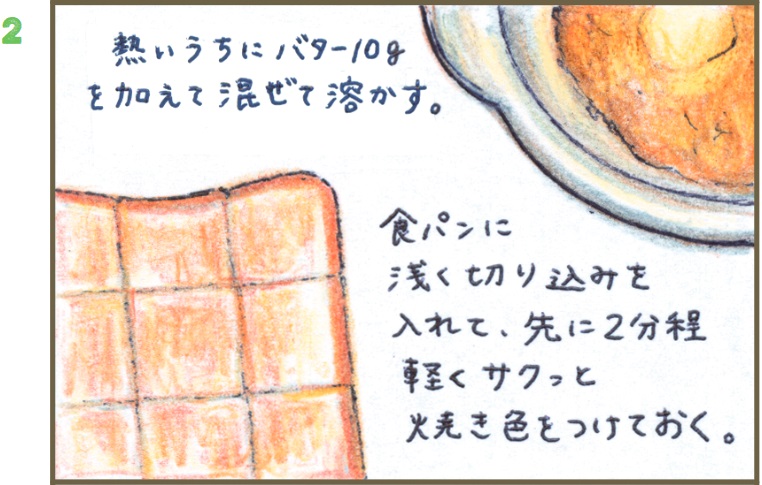 2
熱いうちにバター10g
を加えて混ぜて溶かす。
食パンに
浅く切り込みを
入れて、先に2分程
軽くサクッと
焼き色をつけておく。